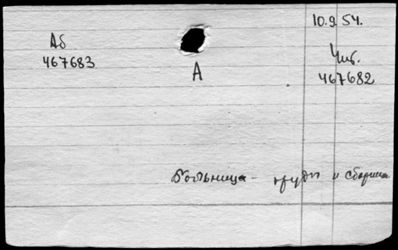 10.9.54.
Аб
467683
А
Чит.
467682
Больница - труды и сборник